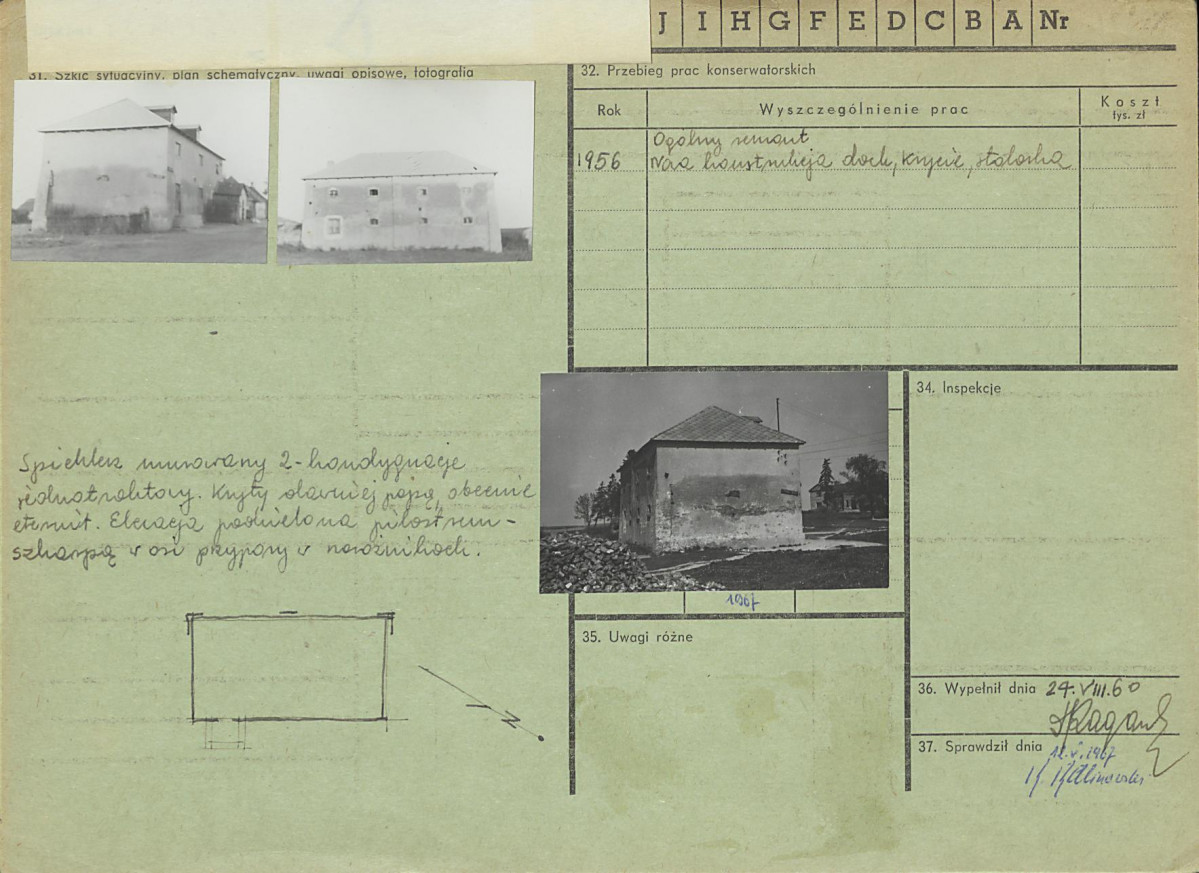 J I H G F E D C B A Nr
31. Szkic sytuacyjny, plan schematyczny, uwagi opisowe, fotografia
32. Przebieg prac konserwatorskich
Rok
Wyszczególnienie prac
Koszt
tys. zł
Ogólny remont
1956
dach, krycie, stolarka
34. Inspekcje
Spichlerz murowany 2-kondygnacje
jednotraktowy. Kryty dawniej papą, obecnie
eternit. Elewacja podzielona pilastrem-
szkarpą w osi przypory w narożnikach.
1967
35. Uwagi różne
N
36. Wypełnił dnia 24.VIII.60
37. Sprawdził dnia 12.V.1967